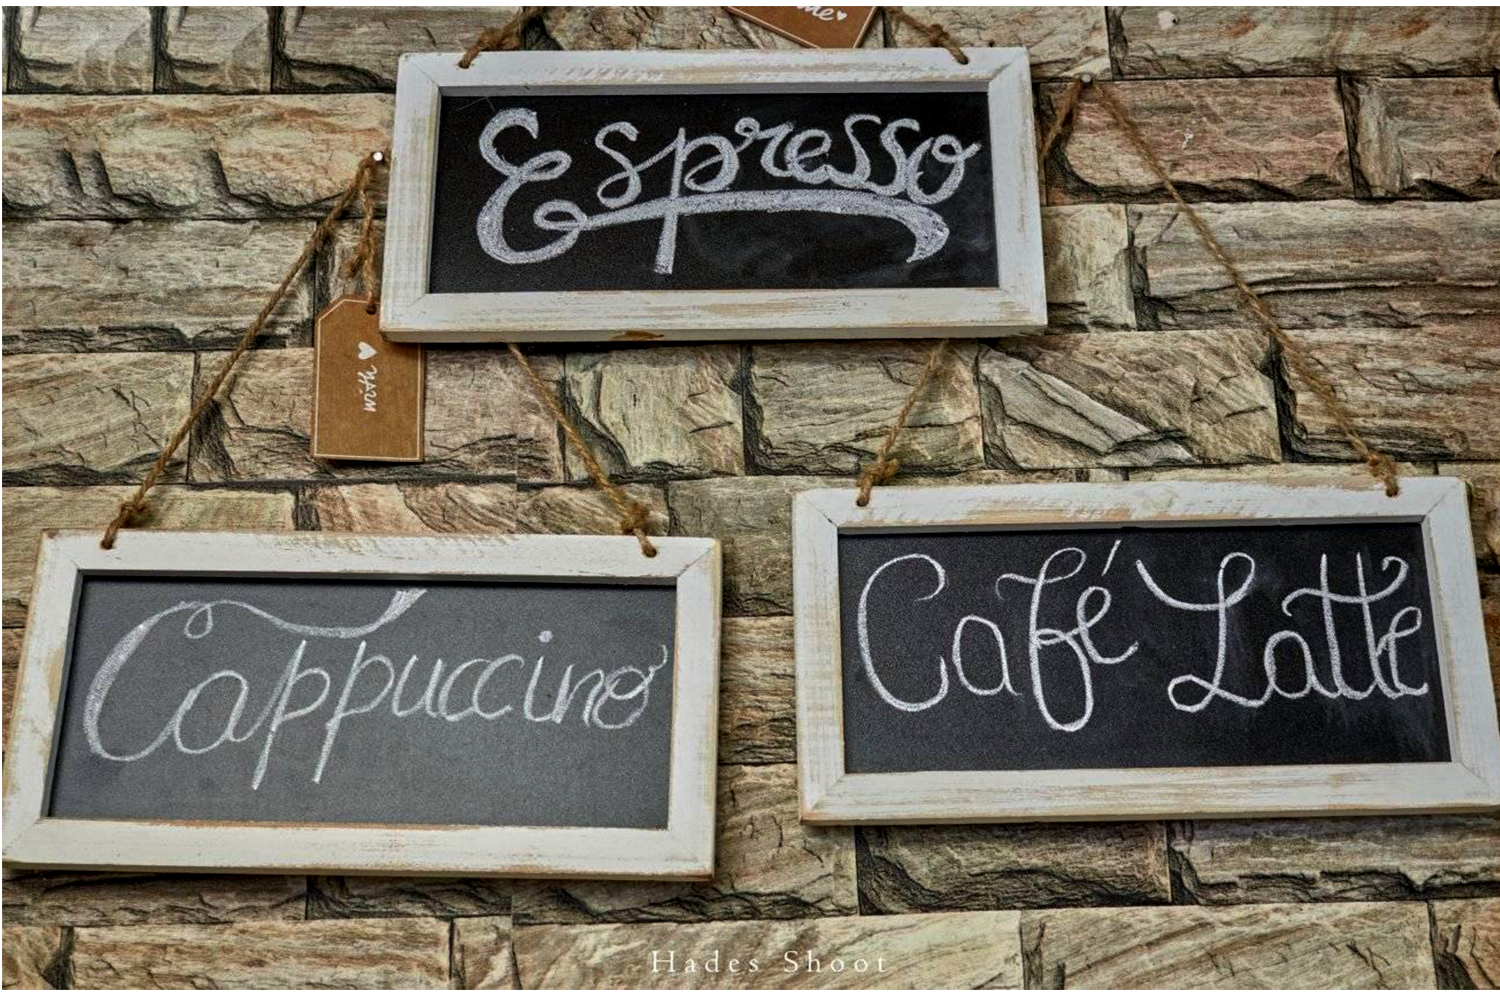 Espresso
with
Cappuccino
Café Latte
Hades Shoot